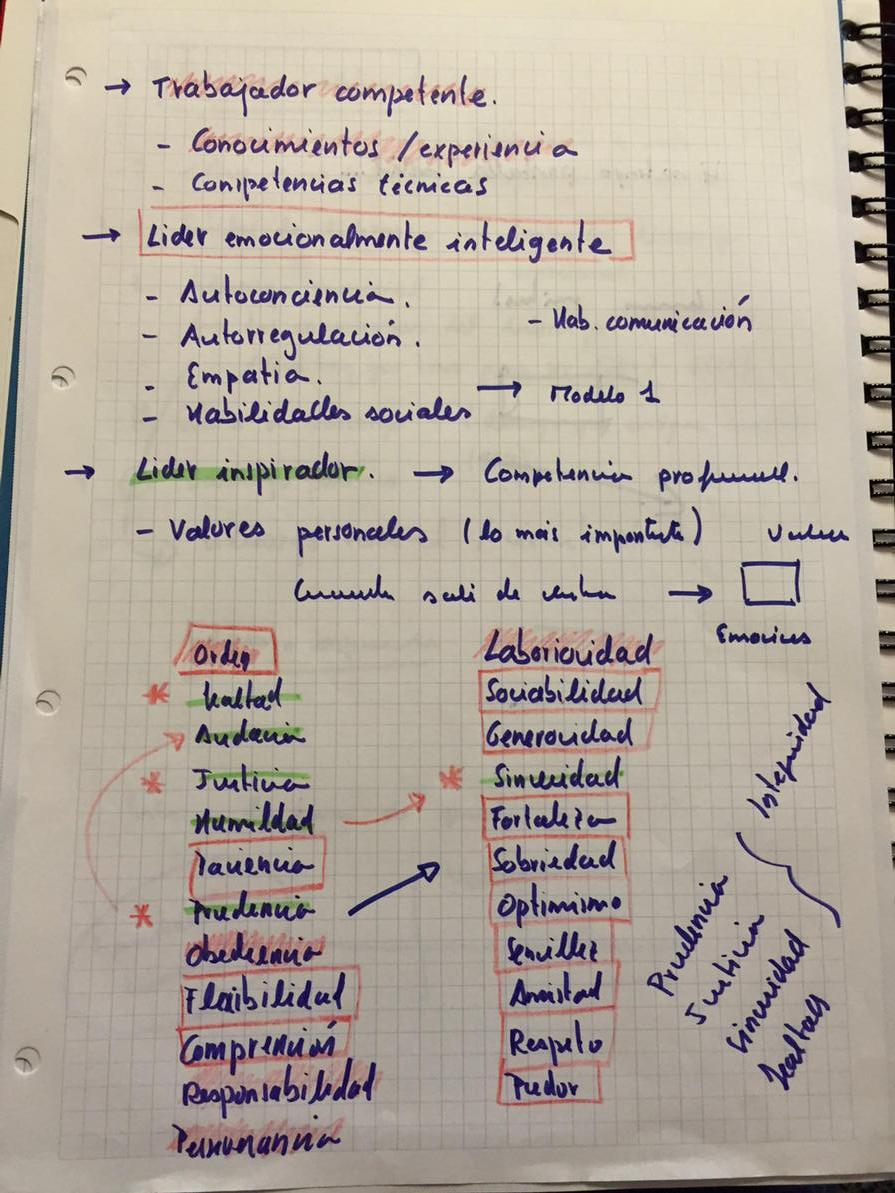 → Trabajador competente.
- Conocimientos / experiencia
- Competencias técnicas
→ Lider emocionalmente inteligente
- Autoconciencia.
- Autorregulación.
- Hab. comunicación
- Empatia.
- Habilidades sociales → Modelo 1
→ Lider inspirador. → Competencia
- Valores personales (lo mas importante)
de →
Emociones
Orden
Lealtad
Audacia
Justicia
Humildad
Paciencia
Prudencia
Obediencia
Flexibilidad
Comprención
Responsabilidad
Perseverancia
Laboriosidad
Sociabilidad
Generosidad
Sinceridad
Fortaleza
Sobriedad
Optimismo
Sencillez
Amistad
Respeto
Pudor
Integridad
Prudencia
Justicia
Sinceridad
Lealtad